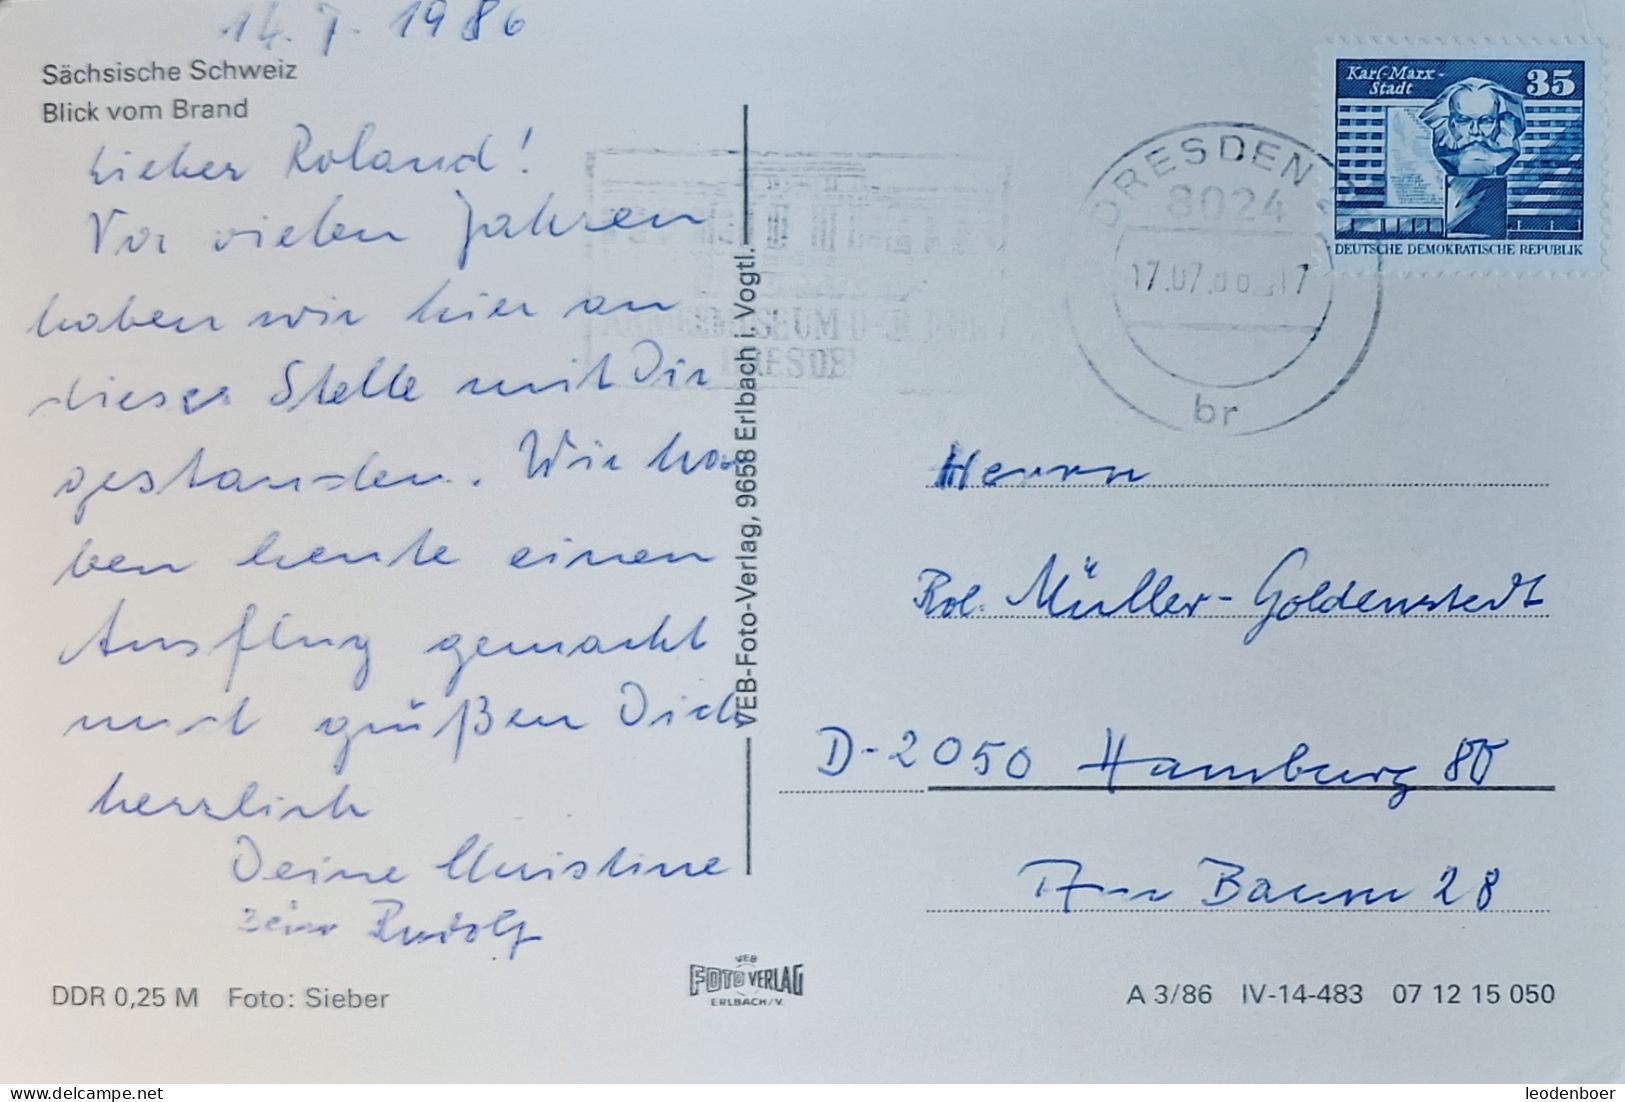 14. 7. 1986
Sächsische Schweiz
Blick vom Brand
Lieber Roland!
Vor vielen Jahren
haben wir hier an
dieser Stelle mit Dir
gestanden. Wir ha-
ben heute einen
Ausflug gemacht
und grüßen Dich
herzlich
Deine Christine
Dein Rudolf
DDR 0,25 M Foto: Sieber
VEB-Foto-Verlag, 9658 Erlbach i. Vogtl.
VEB
FOTO VERLAG
ERLBACH/V.
ARMEEMUSEUM DER DDR
DRESDEN
DRESDEN
8024
17.07.86 17
br
Karl-Marx-
Stadt
35
DEUTSCHE DEMOKRATISCHE REPUBLIK
Herrn
Rol. Müller-Goldenstedt
D-2050 Hamburg 80
Am Baum 28
A 3/86 IV-14-483 07 12 15 050
leodenboer